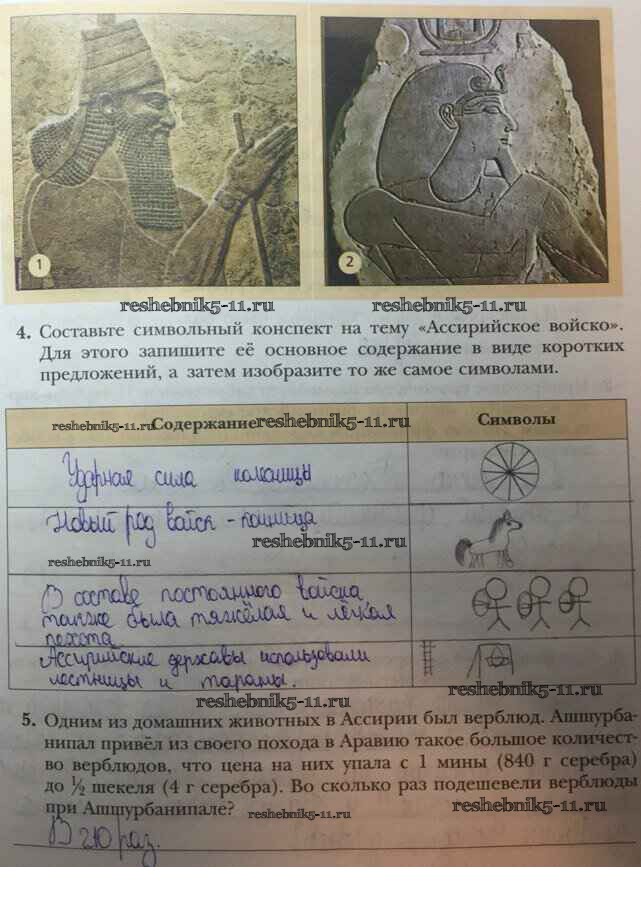 1
2
reshebnik5-11.ru reshebnik5-11.ru
4. Составьте символьный конспект на тему «Ассирийское войско».
Для этого запишите её основное содержание в виде коротких
предложений, а затем изобразите то же самое символами.
reshebnik5-11.ru Содержание reshebnik5-11.ru Символы
Ударная сила колесницы
Новый род войск - конница
reshebnik5-11.ru
reshebnik5-11.ru
В составе постоянного войска
также была тяжёлая и лёгкая
пехота
Ассирийские державы использовали
лестницы и тараны.
reshebnik5-11.ru
reshebnik5-11.ru
5. Одним из домашних животных в Ассирии был верблюд. Ашшурба-
нипал привёл из своего похода в Аравию такое большое количест-
во верблюдов, что цена на них упала с 1 мины (840 г серебра)
до ½ шекеля (4 г серебра). Во сколько раз подешевели верблюды
при Ашшурбанипале? reshebnik5-11.ru reshebnik5-11.ru
В 210 раз.